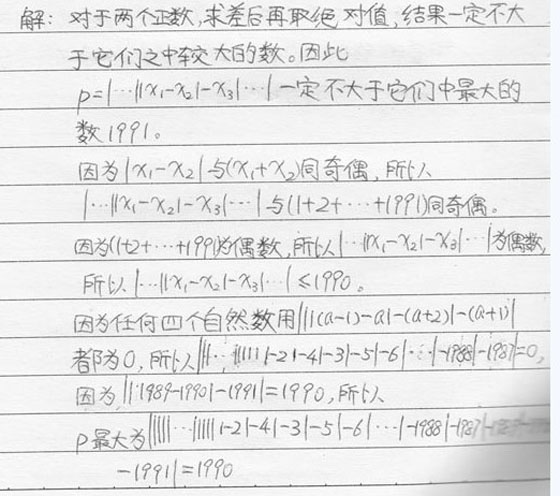 解：对于两个正数，求差后再取绝对值，结果一定不大
于它们之中较大的数。因此
P=|…||x₁-x₂|-x₃|…| 一定不大于它们中最大的
数1991。
因为|x₁-x₂|与(x₁+x₂)同奇偶，所以
|…||x₁-x₂|-x₃|…|与(1+2+…+1991)同奇偶。
因为(1+2+…+1991)为偶数，所以|…||x₁-x₂|-x₃|…|为偶数，
所以|…||x₁-x₂|-x₃|…|≤1990。
因为任何四个自然数用|||(a-1)-a|-(a+2)|-(a+1)|
都为0，所以|||…|||||1-2|-4|-3|-5|-6|…|-1988|-1987|=0，
因为||1989-1990|-1991|=1990，所以
P最大为|||||…|||||1-2|-4|-3|-5|-6|…|-1988|-1987|
-1991|=1990